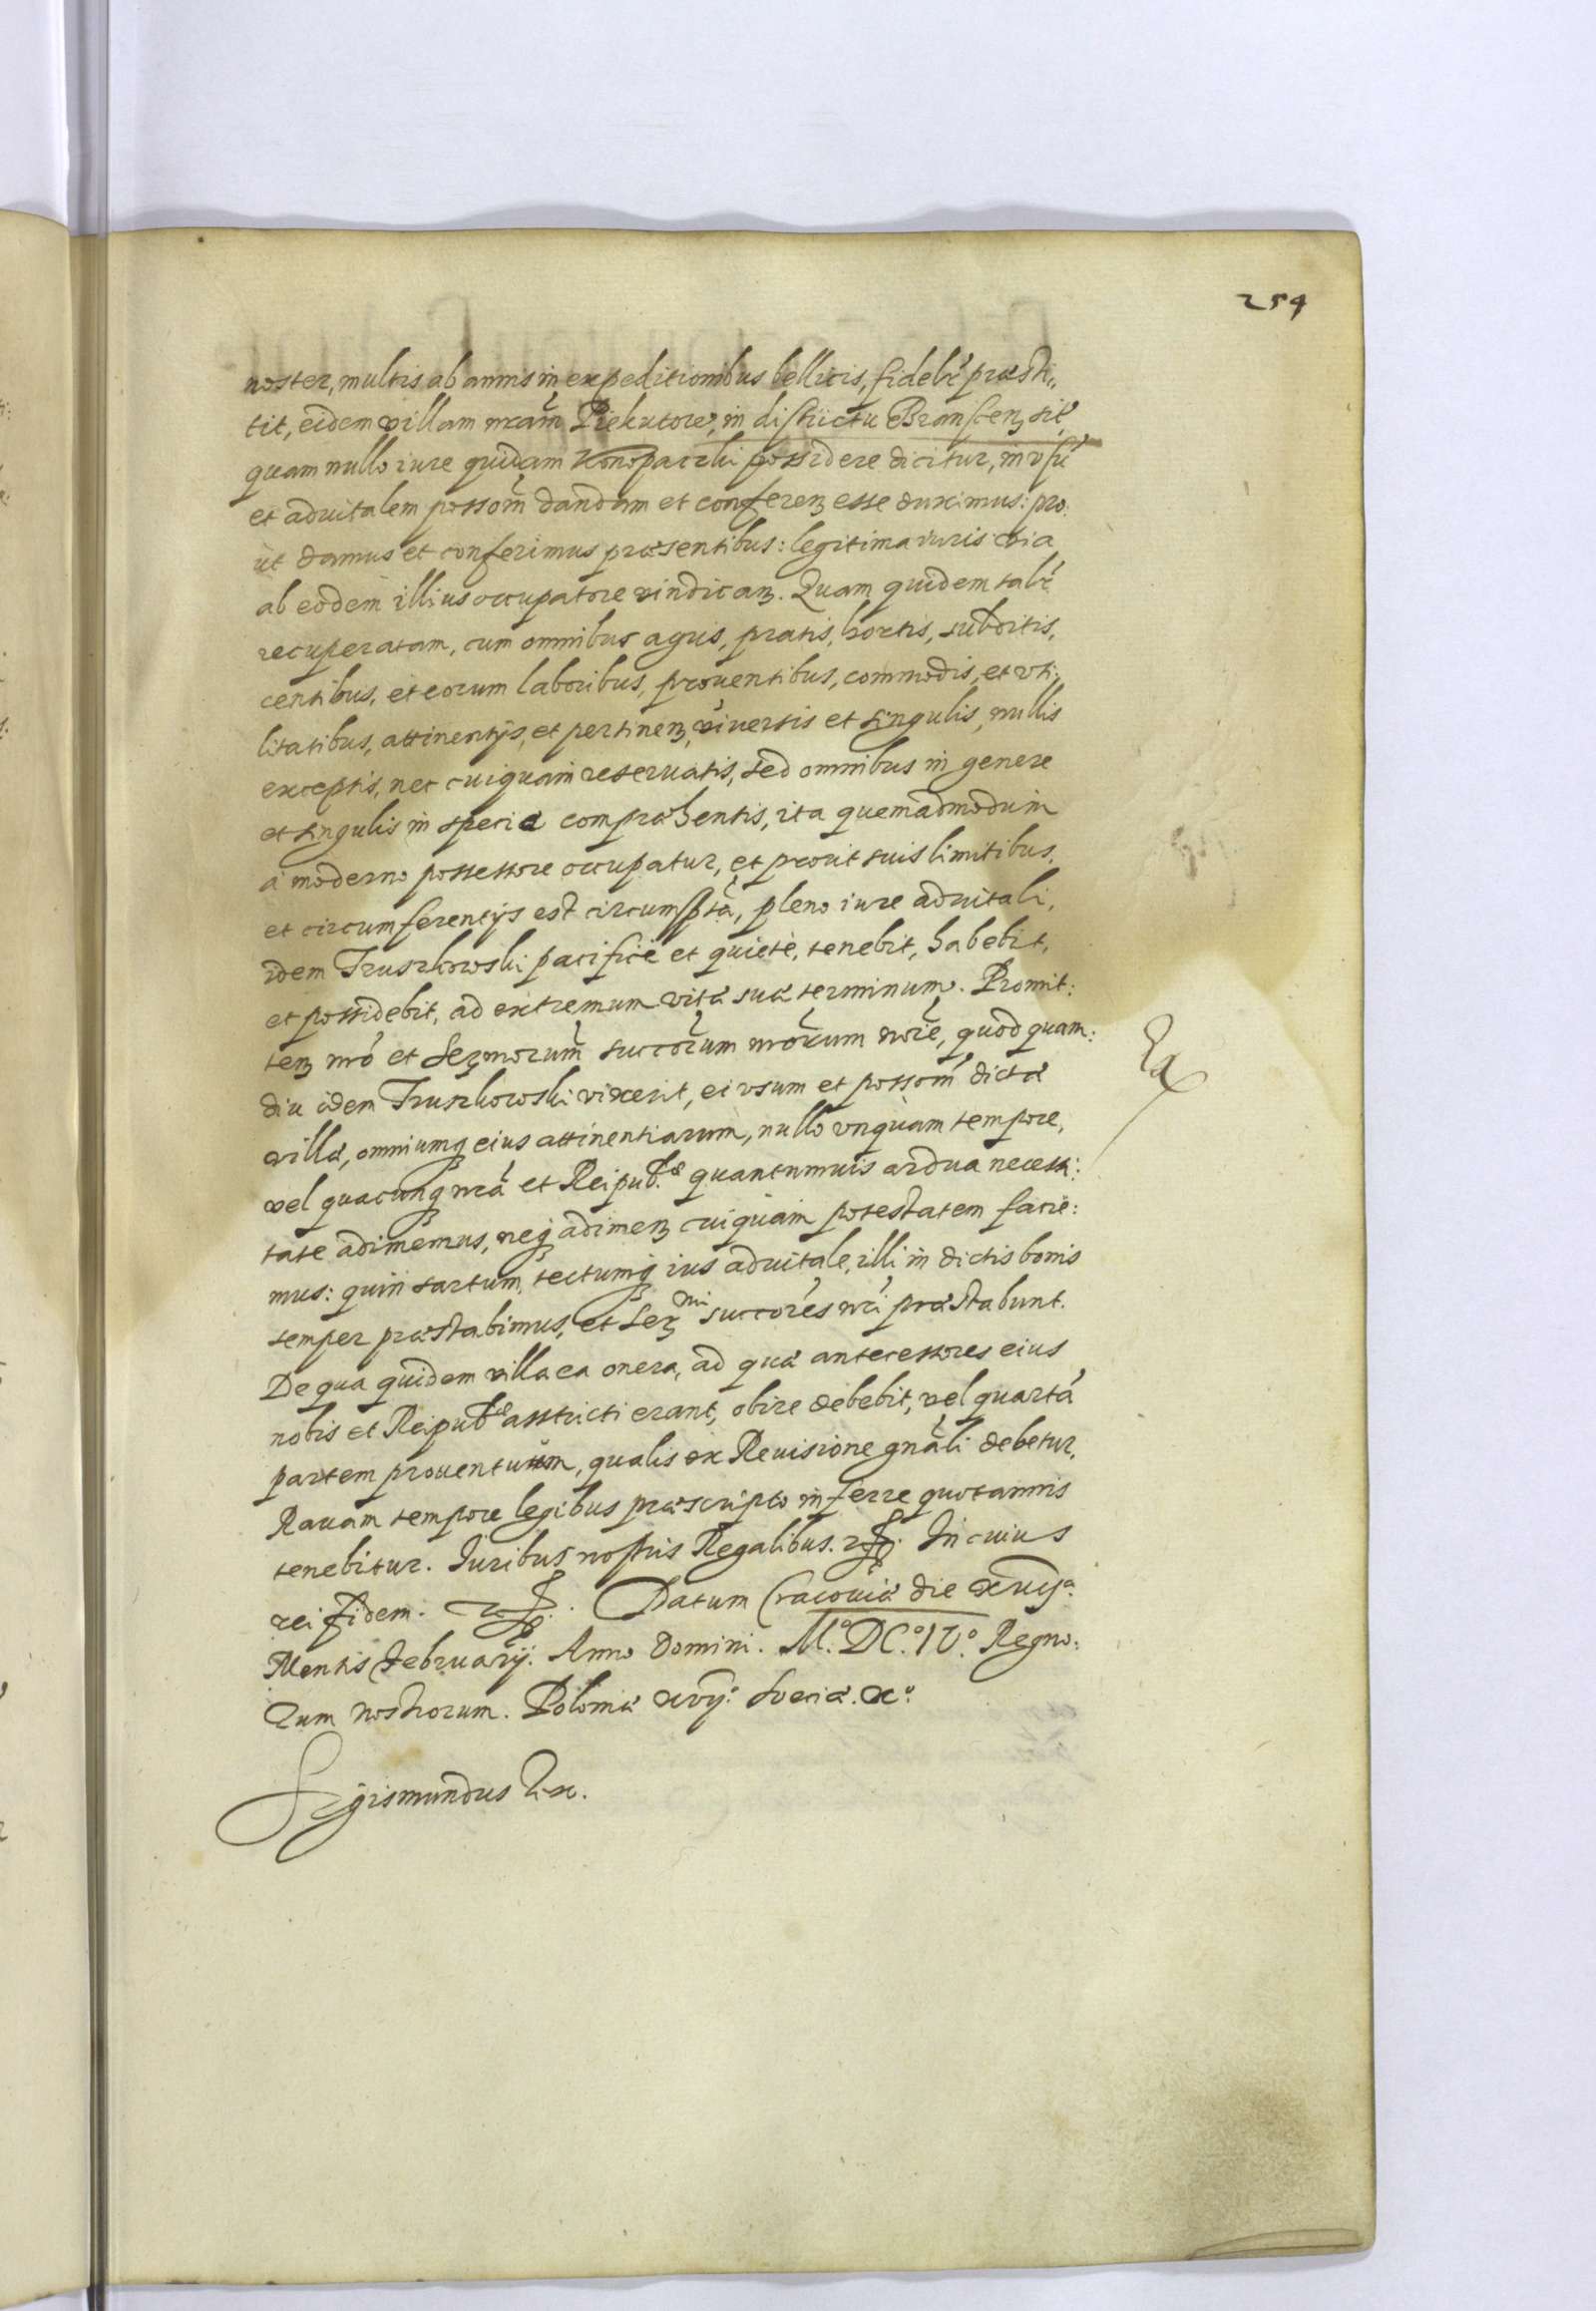 254
noster, multis ab annis in expeditionibus bellicis, fidelr̃ præsti„
tit, eidem villam nr̃am Piekutow, in districtu Branscenȝ sitã,
quam nullo iure quidam Konopaczki possidere dicitur, in vsũ
et aduitalem possom̃ dandam et conferenȝ esse duximus: pro:
ut damus et conferimus præsentibus: legitima iuris via
ab eodem illius occupatore vindicanȝ. Quam quidem talr̃
recuperatam, cum omnibus agris, pratis, hortis, subditis,
censibus, et eorum laboribus, prouentibus, commodis, et vti:
litatibus, attinentijs, et pertinenȝ, vniuersis et singulis, nullis
exceptis, nec cuiquam reseruatis, sed omnibus in genere
et singulis in specie compræhensis, ita quemadmodum
à moderno possessore occupatur, et prout suis limitibus,
et circumferentijs est circumsptã, pleno iure aduitali,
idem Truszkowski pacificè et quietè, tenebit, habebit,
et possidebit, ad extremum vitæ suæ terminum. Promit:
tenȝ nrõ et Serȝmorum̃ succor̃um nror̃um noi̅e, quod quam:
diu idem Truszkowski vixerit, ei vsum et possom̃ dictæ
villæ, omniumq̃ eius attinentiarum, nullo vnquam tempore,
vel quacunq̃ nrã et Reipub.cæ quantumuis ardua necessi:
tate adimemus, neq̃ adimenȝ cuiquam potestatem facie:
mus: quin sartum, tectumq̃ ius aduitale, illi in dictis bonis
semper præstabimus, et Serȝmi succor̃es nr̃i præstabunt.
De qua quidem villa ea onera, ad quæ antecessores eius
nobis et Reipubcæ asstricti erant, obire debebit, vel quartã
partem prouentuum, qualis ex Reuisione gnãli debetur,
Rauam tempore legibus præscripto inferre quotannis
tenebitur. Iuribus nostris Regalibus. In cuius
rei fidem. Datum Cracouiæ die xvija.
Mensis Februarij. Anno Domini. M.o DC.o IV.o Regno:
rum nostrorum. Poloniæ xvij. Sueciæ. xo.
Sigismundus Rex.